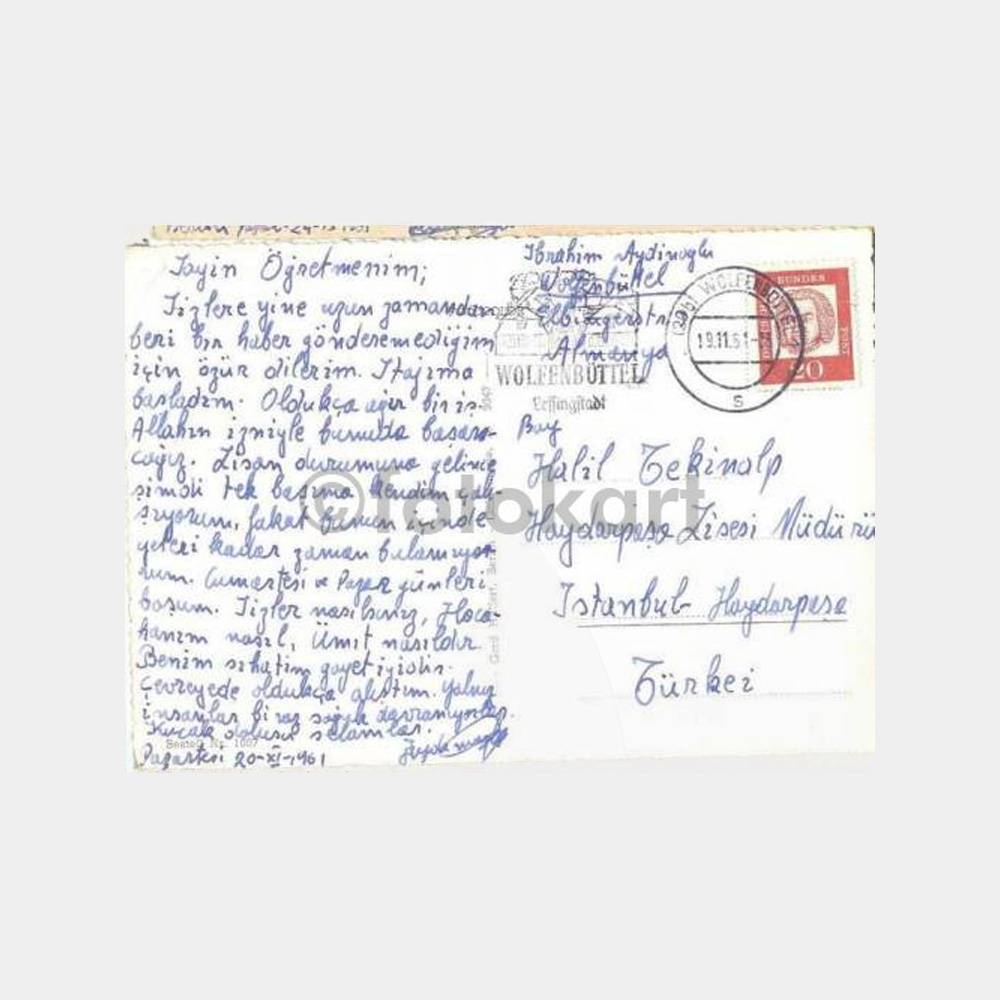 Sayin Öğretmenim;
Sizlere yine uzun zamandan
beri bir haber gönderemediğim
için özür dilerim. Stajıma
başladım. Oldukça ağır bir iş.
Allahın izniyle bunuda başara-
cağız. Lisan durumuna gelince
şimdi tek başıma kendim çalı-
şıyorum, fakat bunun içinde
yeteri kadar zaman bulamıyo-
rum. Cumartesi ve Pazar günleri
boşum. Sizler nasılsınız, Hoca-
hanım nasıl, Ümit nasıldır.
Benim sıhatim gayet iyidir.
Çevreyede oldukça alıştım. Yalnız
insanlar biraz soğuk davranıyorlar.
Kucak dolusu selamlar.
Bestell Nr. 1007
Pazartesi 20-XI-1961
Ibrahim Aydinoglu
Wolfenbüttel
Elbingerstr.
Almanya
WOLFENBÜTTEL
Lessingstadt
WOLFENBÜTTEL
19.11.61
s
20
Bay
Halil Tekinalp
Haydarpaşa Lisesi Müdürü
Istanbul- Haydarpaşa
Türkei
©fotokart